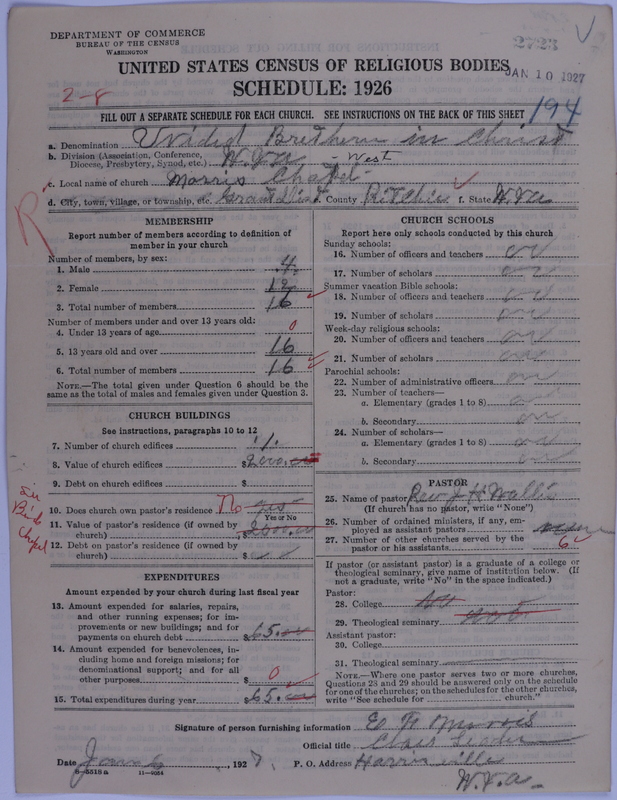 DEPARTMENT OF COMMERCE
BUREAU OF THE CENSUS
WASHINGTON
2723
UNITED STATES CENSUS OF RELIGIOUS BODIES
JAN 10 1927
SCHEDULE: 1926
2-8
194
FILL OUT A SEPARATE SCHEDULE FOR EACH CHURCH. SEE INSTRUCTIONS ON THE BACK OF THIS SHEET
a. Denomination Brethern in Christ
b. Division (Association, Conference, Diocese, Presbytery, Synod, etc.) W. Va - West
c. Local name of church Morris Chapel
d. City, town, village, or township, etc. Grant Dist County Ritchie f. State W. Va
R
MEMBERSHIP
Report number of members according to definition of member in your church
Number of members, by sex:
1. Male 4
2. Female 12
3. Total number of members 16
Number of members under and over 13 years old:
4. Under 13 years of age 0
5. 13 years old and over 16
6. Total number of members 16
NOTE.—The total given under Question 6 should be the same as the total of males and females given under Question 3.
CHURCH BUILDINGS
See instructions, paragraphs 10 to 12
7. Number of church edifices 1
8. Value of church edifices $2000.00
9. Debt on church edifices $
10. Does church own pastor's residence No yes
Yes or No
11. Value of pastor's residence (if owned by church) $2000.00
12. Debt on pastor's residence (if owned by church) $
EXPENDITURES
Amount expended by your church during last fiscal year
13. Amount expended for salaries, repairs, and other running expenses; for improvements or new buildings; and for payments on church debt $65.00
14. Amount expended for benevolences, including home and foreign missions; for denominational support; and for all other purposes $ 0
15. Total expenditures during year $65.00
CHURCH SCHOOLS
Report here only schools conducted by this church
Sunday schools:
16. Number of officers and teachers
17. Number of scholars
Summer vacation Bible schools:
18. Number of officers and teachers
19. Number of scholars
Week-day religious schools:
20. Number of officers and teachers
21. Number of scholars
Parochial schools:
22. Number of administrative officers
23. Number of teachers—
a. Elementary (grades 1 to 8)
b. Secondary
24. Number of scholars—
a. Elementary (grades 1 to 8)
b. Secondary
PASTOR
25. Name of pastor Rev J H Wallis
(If church has no pastor, write "None")
26. Number of ordained ministers, if any, employed as assistant pastors
27. Number of other churches served by the pastor or his assistants 6
If pastor (or assistant pastor) is a graduate of a college or theological seminary, give name of institution below. (If not a graduate, write "No" in the space indicated.)
Pastor:
28. College No
29. Theological seminary
Assistant pastor:
30. College
31. Theological seminary
NOTE.—Where one pastor serves two or more churches, Questions 28 and 29 should be answered only on the schedule for one of the churches; on the schedules for the other churches, write "See schedule for church."
Signature of person furnishing information
Official title Class Leader
Date Jan 6, 1927. P. O. Address Harrisville
W. Va
8-5518 a 11-9054